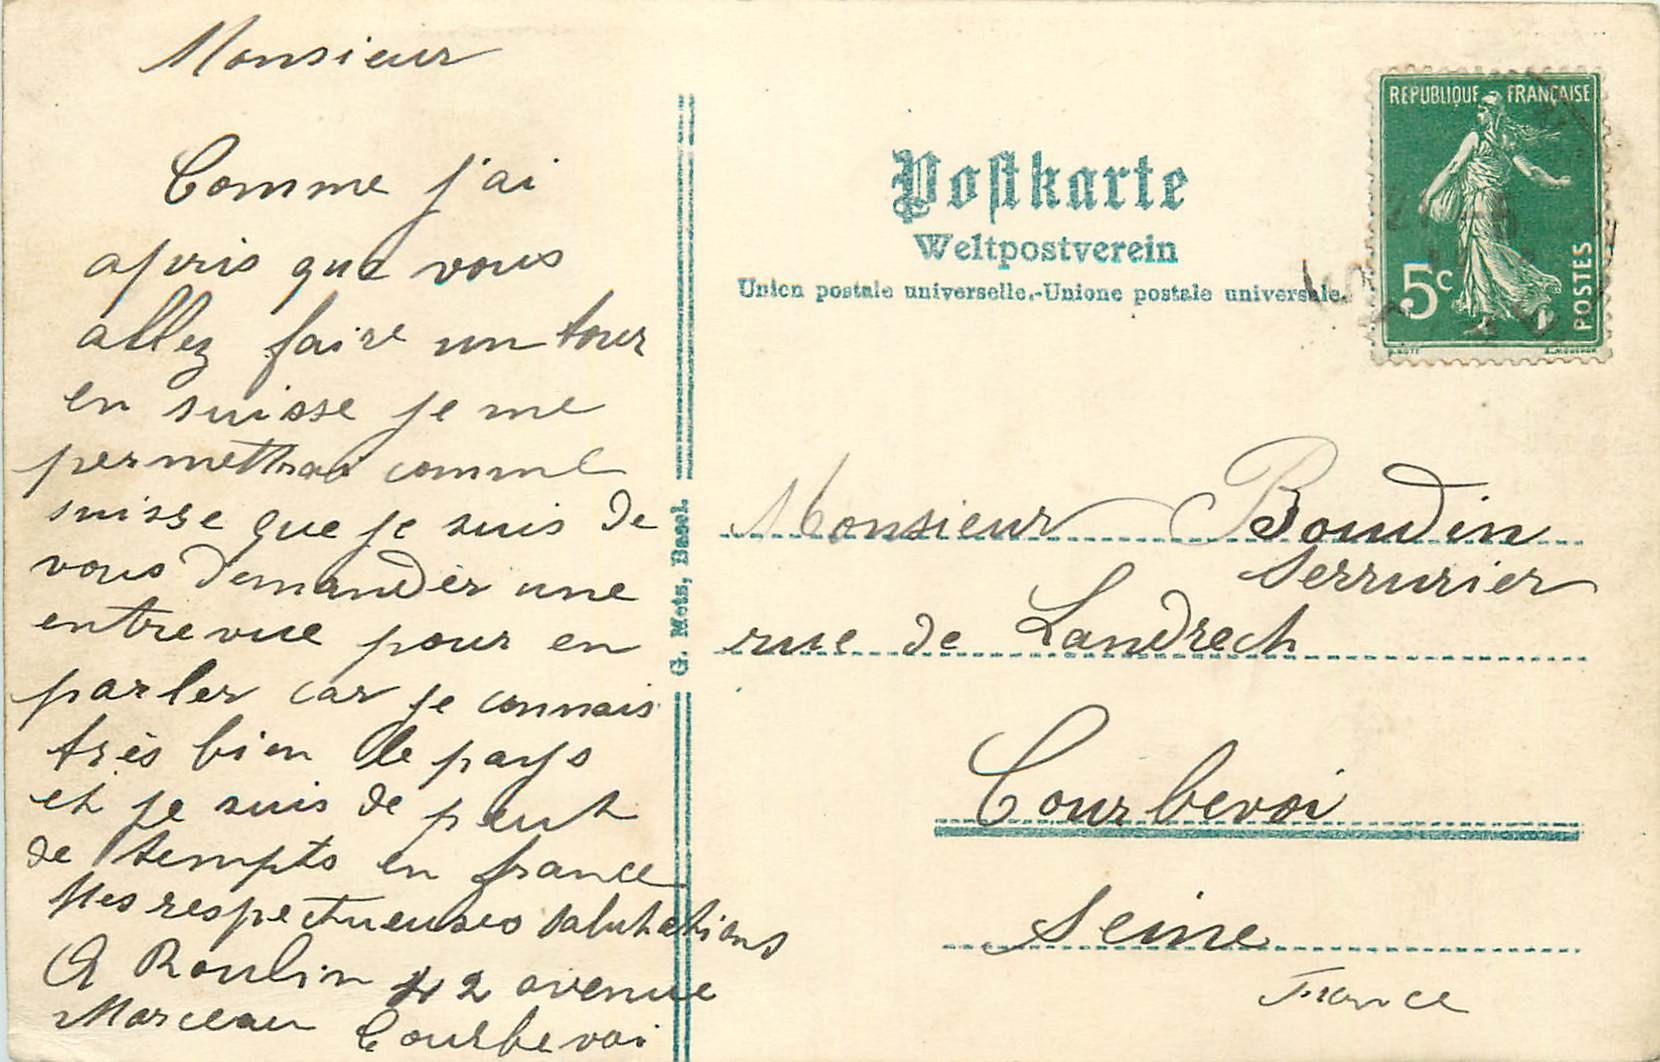 Monsieur
Comme j'ai
apris que vous
allez faire un tour
en suisse je me
permettrai comme
suisse que je suis de
vous demander une
entrevue pour en
parler car je connais
très bien le pays
et je suis de peut
de tempts en france
Mes respectueuses salutations
A Roulin 42 avenue
Marceau Courbevoi
G. Metz, Basel.
Postkarte
Weltpostverein
Union postale universelle.-Unione postale universale.
REPUBLIQUE FRANÇAISE
5c
POSTES
Monsieur Boudin
Serrurier
rue de Landrech
Courbevoi
Seine
France